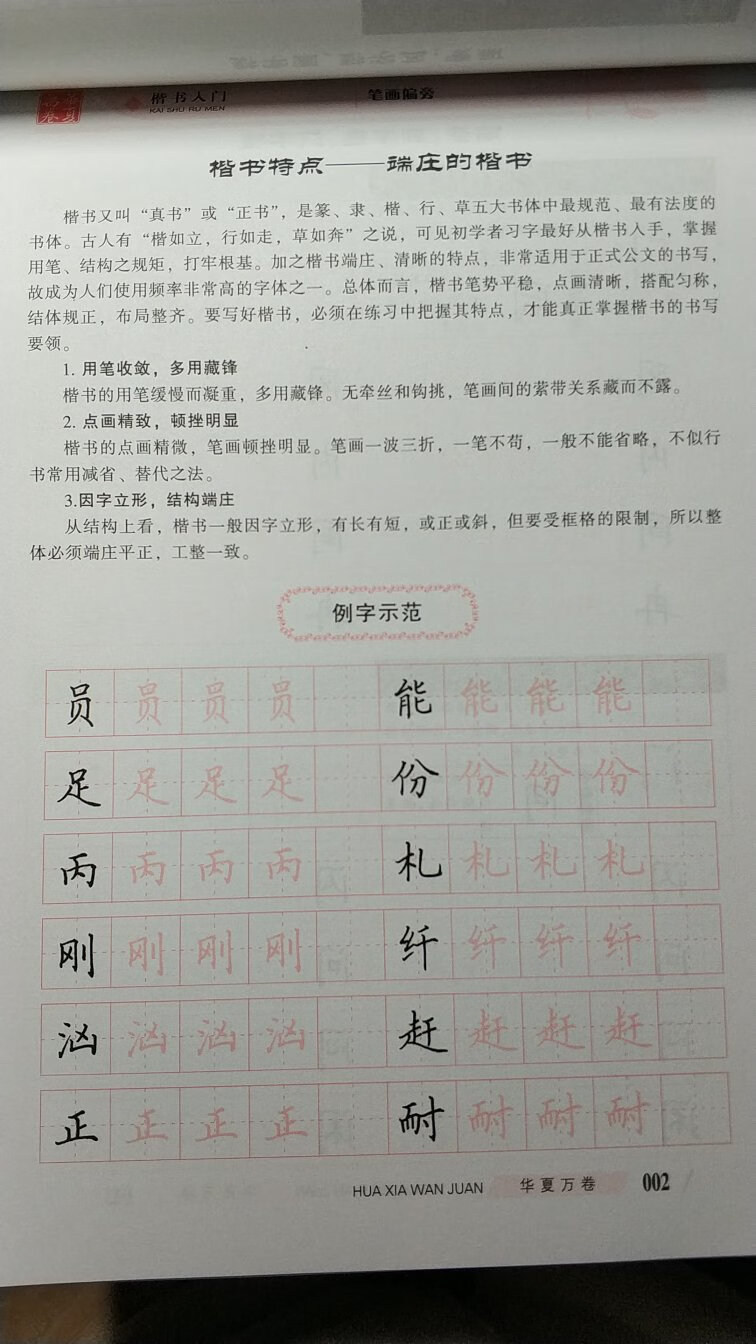 楷书入门
KAI SHU RU MEN
笔画偏旁
楷书特点——端庄的楷书
楷书又叫“真书”或“正书”，是篆、隶、楷、行、草五大书体中最规范、最有法度的
书体。古人有“楷如立，行如走，草如奔”之说，可见初学者习字最好从楷书入手，掌握
用笔、结构之规矩，打牢根基。加之楷书端庄、清晰的特点，非常适用于正式公文的书写，
故成为人们使用频率非常高的字体之一。总体而言，楷书笔势平稳，点画清晰，搭配匀称，
结体规正，布局整齐。要写好楷书，必须在练习中把握其特点，才能真正掌握楷书的书写
要领。
1. 用笔收敛，多用藏锋
楷书的用笔缓慢而凝重，多用藏锋。无牵丝和钩挑，笔画间的萦带关系藏而不露。
2. 点画精致，顿挫明显
楷书的点画精微，笔画顿挫明显。笔画一波三折，一笔不苟，一般不能省略，不似行
书常用减省、替代之法。
3.因字立形，结构端庄
从结构上看，楷书一般因字立形，有长有短，或正或斜，但要受框格的限制，所以整
体必须端庄平正，工整一致。
例字示范
员 员 员 员 能 能 能 能
足 足 足 足 份 份 份 份
丙 丙 丙 丙 札 札 札 札
刚 刚 刚 刚 纤 纤 纤 纤
汹 汹 汹 汹 赶 赶 赶 赶
正 正 正 正 耐 耐 耐 耐
HUA XIA WAN JUAN 华夏万卷 002